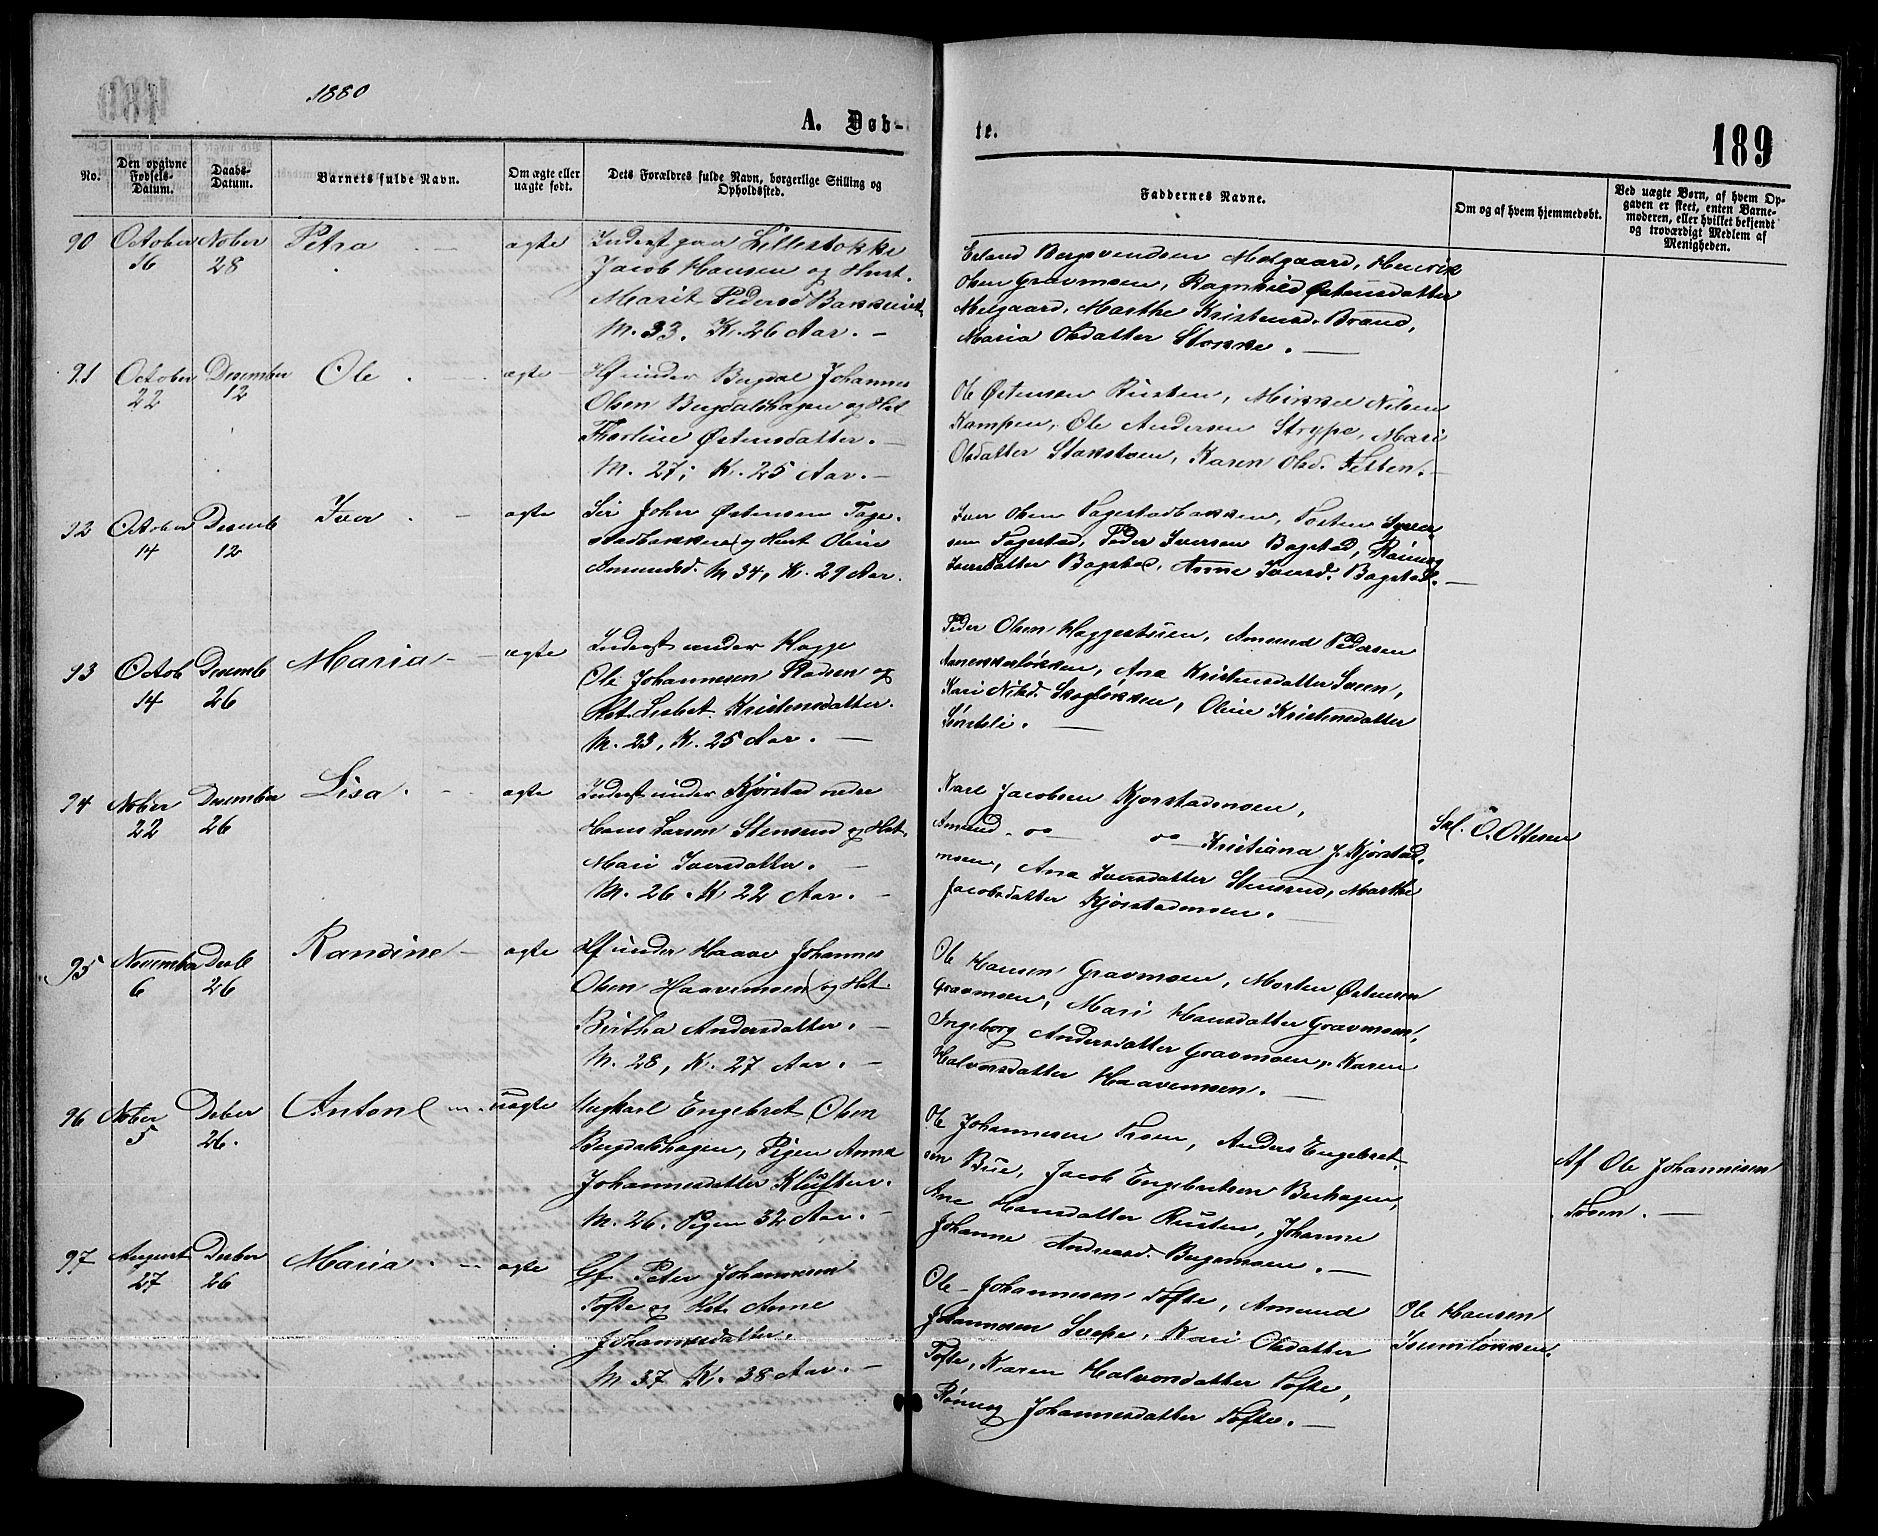 1880
A. Døb-
te.
189
No.
Den opgivne Fødsels-Datum.
Daabs-Datum.
Barnets fulde Navn.
Om ægte eller uægte født.
Dets Forældres fulde Navn, borgerlige Stilling og Opholdssted.
Faddernes Navne.
Om og af hvem hjemmedøbt.
Ved uægte Børn, af hvem Op-
gaven er skeet, enten Barne-
moderen, eller hvilket bekjendt
og troværdigt Medlem af
Menigheden.
90 October 16 Nober 28 Petra ægte
Inderst paa Lillestokke
Jacob Hansen og Hust.
Marit Pedersd Bakken
M. 33. K. 26 Aar. —
Erland Bergsvendsen Melgaard, Henrik
Olsen Gravmoen, Ragnhild Østensdatter
Melgaard, Marthe Kristensd. Brand,
Maria Olsdatter Stokke. —
91 October 22 Desember 12 Ole ægte
Hf under Bugdal Johannes
Olsen Bugdalshagen og Hst
Thorline Østensdatter. —
M. 27; K. 25 Aar. —
Ole Østensen Rusten, Mikkel Nilsen
Kampen, Ole Andersen Strype, Mari
Olsdatter Stokstoen, Karen Olsd.
92 October 14 Desemb 12 Iver ægte
John Østensen Tage-
stadbakken og Hust Oline
Amundsd. M 34, K. 29 Aar.
Iver Olsen Tagestadbakken, Torsten Syver
sen Tagestad, Peder Iversen Bagstad, Rønnog
Iversdatter Bagstad, Anne Iversd. Bagstad. —
93 Octob 14 Desemb 26 Maria ægte
Inderst under Hagge
Ole Johannesen Stadsen og
Hst. Lisbet Kristensdatter.
M. 23, K. 25 Aar. —
Peder Olsen Haggestuen, Amund Pedersen
Ana Kristensdatter
Kari Nilsd. Skogløkken, Oline Kristensdatter
94 Nober 22 Desember 26 Lisa ægte
Inderst under Kjørstad nedre
Hans Larsen Stensrud og Hst.
Mari Iversdatter. —
M. 26. K 22 Aar. —
Karl Jacobsen Kjorstadmoen,
Amund — — Kristiana J. Kjørstad
moen, Ana Iversdatter Stensrud, Marthe
Jacobsdatter Kjorstadmoen. —
Skl. O. Ottesen
95 November 6 Desb 26 Randine ægte
Hf under Haave Johannes
Olsen Haavemoen og Hst.
Birtha Andersdatter. —
M. 28, K. 27 Aar. —
Ole Hansen Gravmoen, Morten Østensen
Gravmoen, Mari Hansdatter Gravmoen,
Ingeborg Andersdatter Gravmoen, Karen
Halvorsdatter Haavemoen. —
96 Nober 5 Dsber 26. Anton uægte
Ungkarl Engebret Olsen
Bugdalshagen, Pigen Anna
Johannesdatter Kluften.
M. 26. Pigen 32 Aar. —
Ole Johannesen Troen, Anders Engebret-
sen Bue, Jacob Engebretsen
Ane Hansdatter Rusten, Johanne
Johanne Andreasd. —
Af Ole Johannesen
Troen. —
97 August 27 Desber 26 Maria ægte
Gf. Peter Johannesen
Tofte og Hst. Anne
Johannesdatter.
M 37 K. 38 Aar. —
Ole Johannesen Tofte, Amund
Johannesen Kari Olsdatter
Tofte, Karen Halvorsdatter Tofte,
Rønnog Johannesdatter Tofte. —
Ole Hansen
Isumløkken.